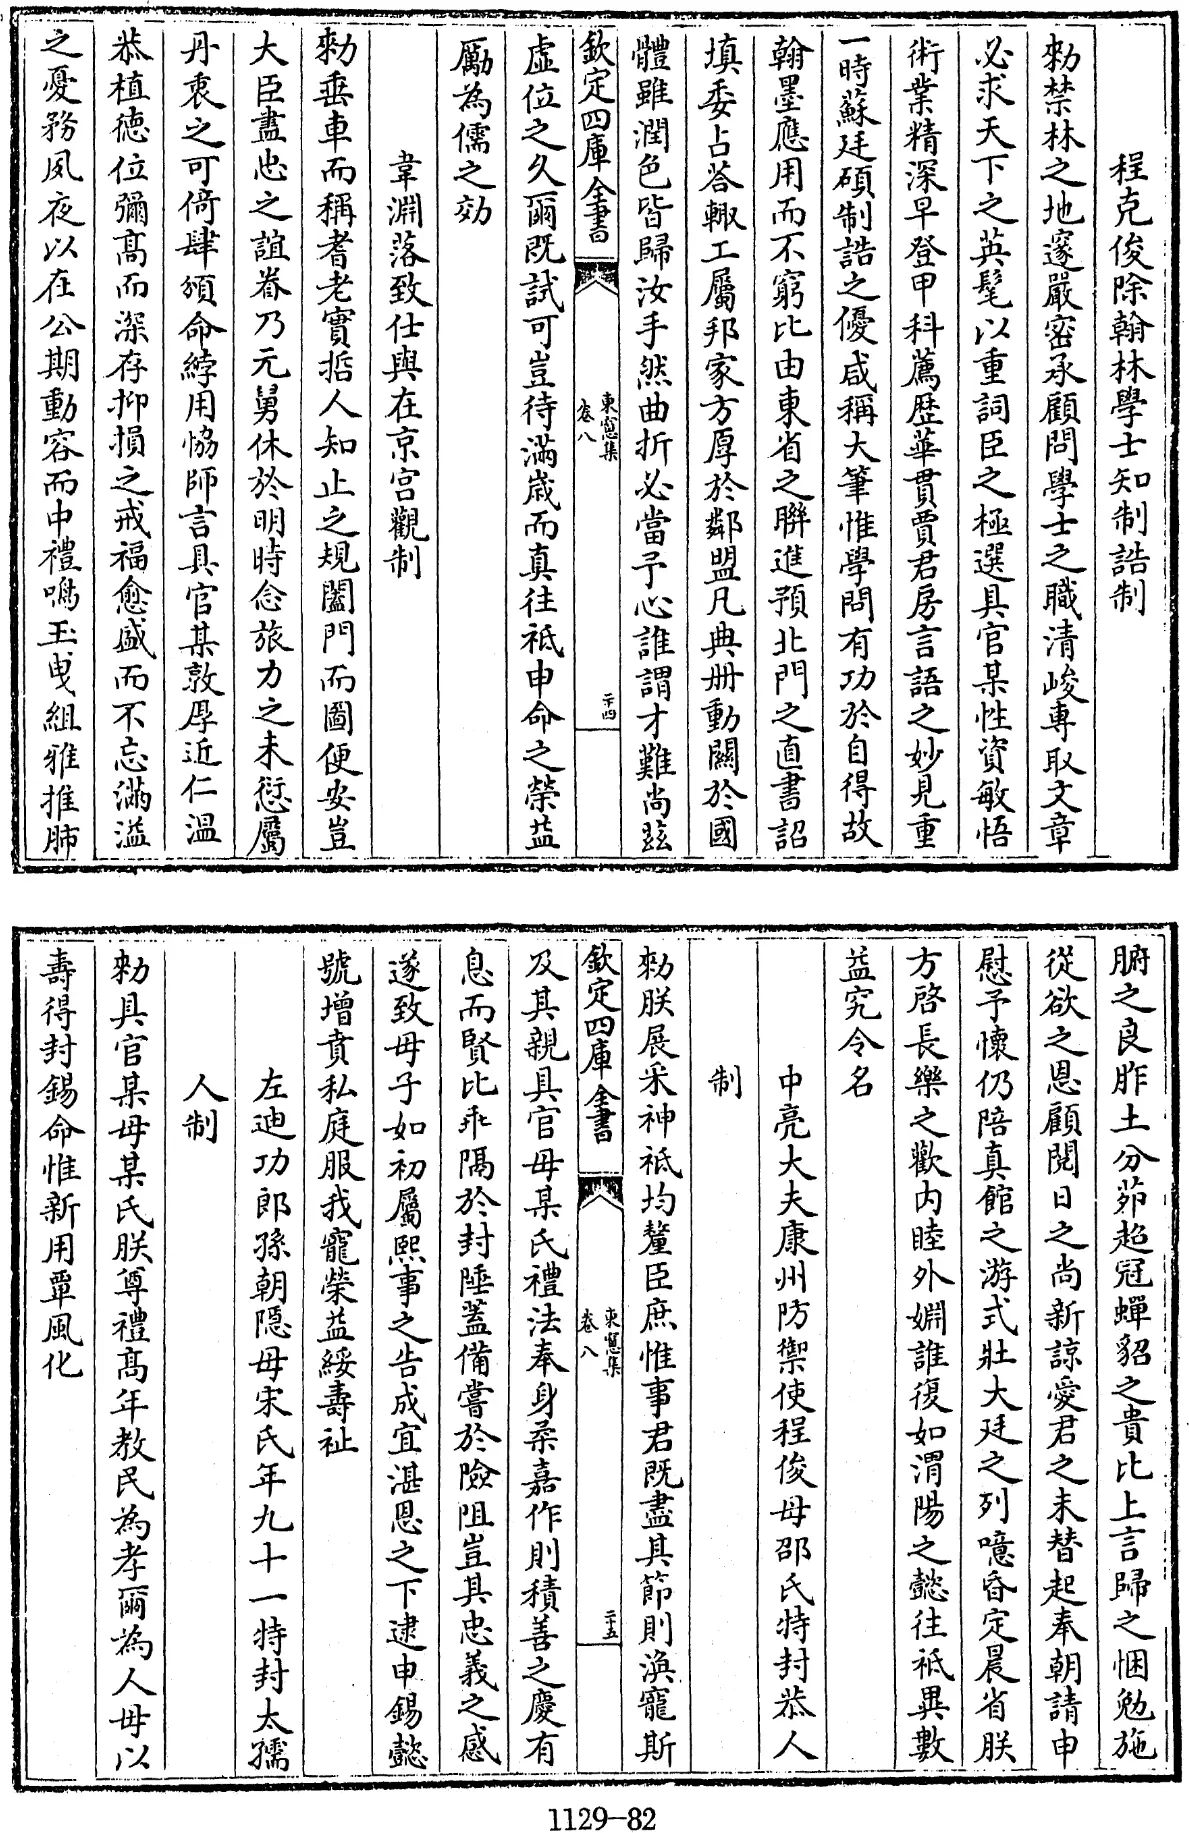 程克俊除翰林學士知制誥制
勑禁林之地邃嚴密承顧問學士之職清峻專取文章
必求天下之英髦以重詞臣之極選具官某性資敏悟
術業精深早登甲科薦歴華貫賈君房言語之妙見重
一時蘇廷碩制誥之優咸稱大筆惟學問有功於自得故
翰墨應用而不窮比由東省之聯進預北門之直書詔
填委占荅輙工屬邦家方厚於鄰盟凡典册動關於國
體雖潤色皆歸汝手然曲折必當予心誰謂才難尚兹
欽定四庫全書
東窻集
卷八
二十四
虛位之久爾既試可豈待滿歲而真往祗申命之榮益
勵為儒之効
韋淵落致仕與在京宫觀制
勑垂車而稱耆老實哲人知止之規闔門而圖便安豈
大臣盡忠之誼眷乃元舅休於明時念旅力之未愆屬
丹衷之可倚肆頒命綍用恊師言具官某敦厚近仁溫
恭植德位彌髙而深存抑損之戒福愈盛而不忘滿溢
之憂務夙夜以在公期動容而中禮鳴玉曵組雅推肺
腑之良胙土分茆超冠蟬貂之貴比上言歸之悃勉施
從欲之恩顧閱日之尚新諒愛君之未替起奉朝請申
慰予懷仍陪真館之游式壯大廷之列噫昏定晨省朕
方啓長樂之歡内睦外婣誰復如渭陽之懿往祗異數
益究令名
中亮大夫康州防禦使程俊母邵氏特封恭人
制
勑朕展采神祗均釐臣庶惟事君既盡其節則渙寵斯
欽定四庫全書
東窻集
卷八
二十五
及其親具官母某氏禮法奉身柔嘉作則積善之慶有
息而賢比乖隔於封陲蓋備嘗於險阻豈其忠義之感
遂致母子如初屬熙事之告成宜湛恩之下逮申錫懿
號增賁私庭服我寵榮益綏壽祉
左迪功郎孫朝隠母宋氏年九十一特封太孺
人制
勑具官某母某氏朕尊禮髙年教民為孝爾為人母以
壽得封錫命惟新用覃風化
1129-82